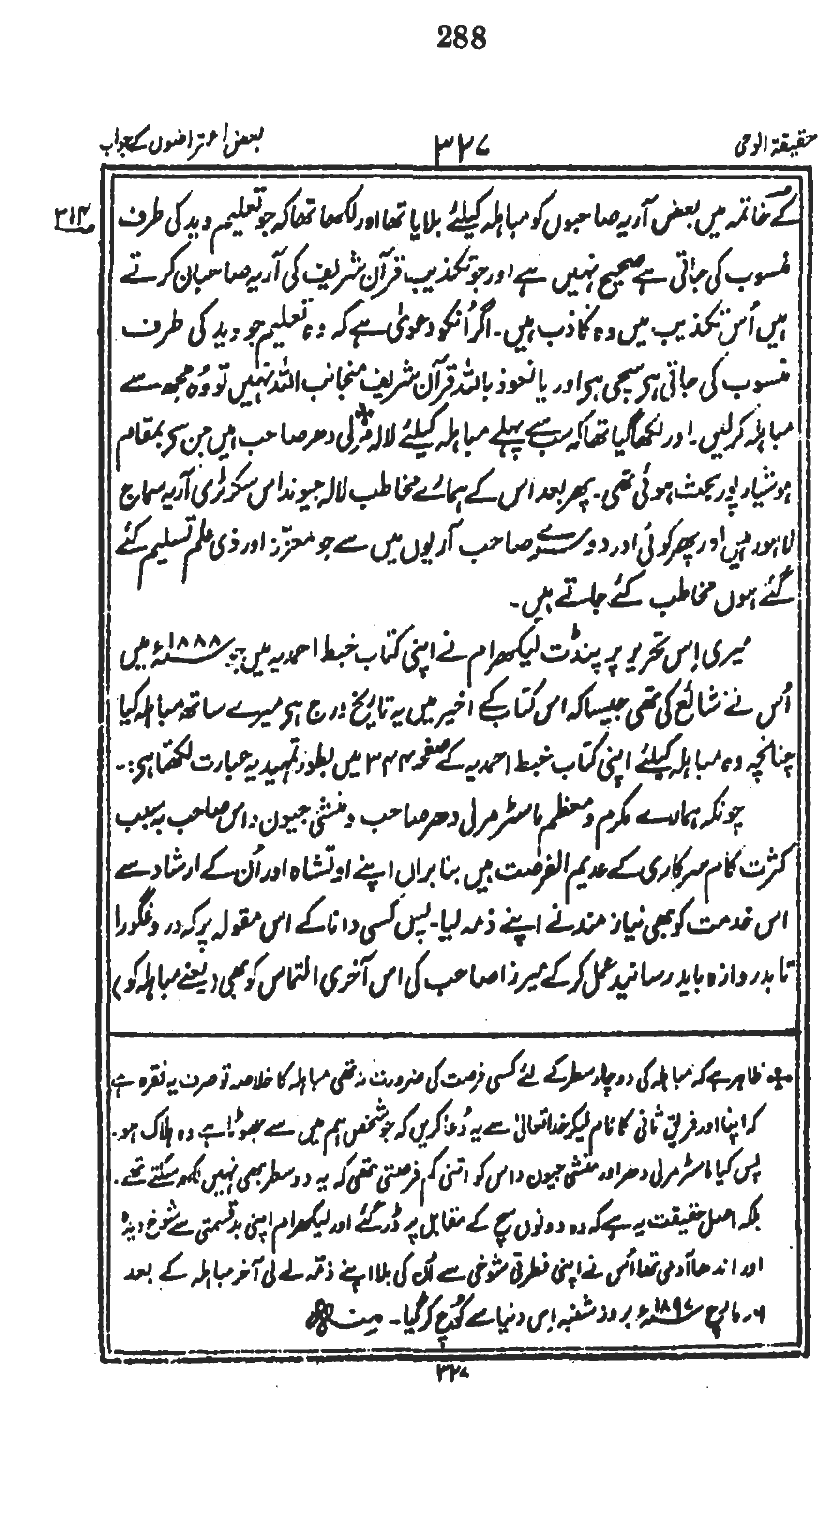 288
حقیقۃ الوحی ۳۲۷ بعض اعتراضوں کے جواب
۳۱۴
کے خاتمہ میں بعض آریہ صاحبوں کو مباہلہ کیلئے بلایا تھا اور لکھا تھا کہ جو تعلیم وید کی طرف
منسوب کی جاتی ہے صحیح نہیں ہے اور جو تکذیب قرآن شریف کی آریہ صاحبان کرتے
ہیں اُس تکذیب میں وہ کاذب ہیں۔ اگر اُنکو دعویٰ ہے کہ وہ تعلیم جو وید کی طرف
منسوب کی جاتی ہر سچی ہر اور یا نعوذ باللہ قرآن شریف منجانب اللہ نہیں تو وہ مجھ سے
مباہلہ کرلیں۔ اور لکھا گیا تھا کہ سب سے پہلے مباہلہ کیلئے لالہ مرلی دھر صاحب ہیں جن سے بمقام
ہوشیار پور بحث ہوئی تھی۔ پھر بعد اس کے ہمارے مخاطب لالہ جیونداس سکرٹری آریہ سماج
لاہور ہیں اور پھر کوئی اور دوسرے صاحب آریوں میں سے جو معزز اور ذی علم تسلیم کئے
گئے ہوں مخاطب کئے جاتے ہیں۔
میری اِس تحریر پر پنڈت لیکھرام نے اپنی کتاب خبط احمدیہ میں جو ۱۸۸۸ء میں
اُس نے شائع کی تھی جیسا کہ اس کتاب کے اخیر میں یہ تاریخ درج ہر میرے ساتھ مباہلہ کیا
چنانچہ وہ مباہلہ کیلئے اپنی کتاب خبط احمدیہ کے صفحہ ۳۴۴ میں بطور تمہید یہ عبارت لکھتا ہر:۔
چونکہ ہمارے مکرم و معظم ماسٹر مرلی دھر صاحب و منشی جیون داس صاحب بہ سبب
کثرت کام سرکاری کے عدیم الفرصت ہیں بنابراں اپنے اوتشاہ اور اُن کے ارشاد سے
اس خدمت کو بھی نیازمند نے اپنے ذمہ لیا۔ پس کسی دانا کے اس مقولہ پر کہ دروغگو را
تا بدروازہ باید رسانید عمل کرکے میرزا صاحب کی اس آخری التماس کو بھی (یعنے مباہلہ کو)
٭ ظاہر ہے کہ مباہلہ کی دو چار سطر کے لئے کسی فرصت کی ضرورت نہ تھی مباہلہ کا خلاصہ تو صرف یہ فقرہ ہے
کہ اپنا اور فریق ثانی کا نام لیکر خدا تعالیٰ سے یہ دُعا کریں کہ جو شخص ہم میں سے جھوٹا ہے وہ ہلاک ہو۔
پس کیا ماسٹر مرلی دھر اور منشی جیون داس کو اتنی کم فرصتی تھی کہ یہ دو سطر بھی نہیں لکھ سکتے تھے۔
بلکہ اصل حقیقت یہ ہے کہ وہ دونوں سچ کے مقابل پر ڈر گئے اور لیکھرام اپنی بدقسمتی سے شوخ دیدہ
اور اندھا آدمی تھا اُس نے اپنی فطرتی شوخی سے اُن کی بلا اپنے ذمّہ لے لی آخر مباہلہ کے بعد
۶ مارچ ۱۸۹۷ء بروز شنبہ اِس دنیا سے کُوچ کر گیا۔ منہ
۳۲۷